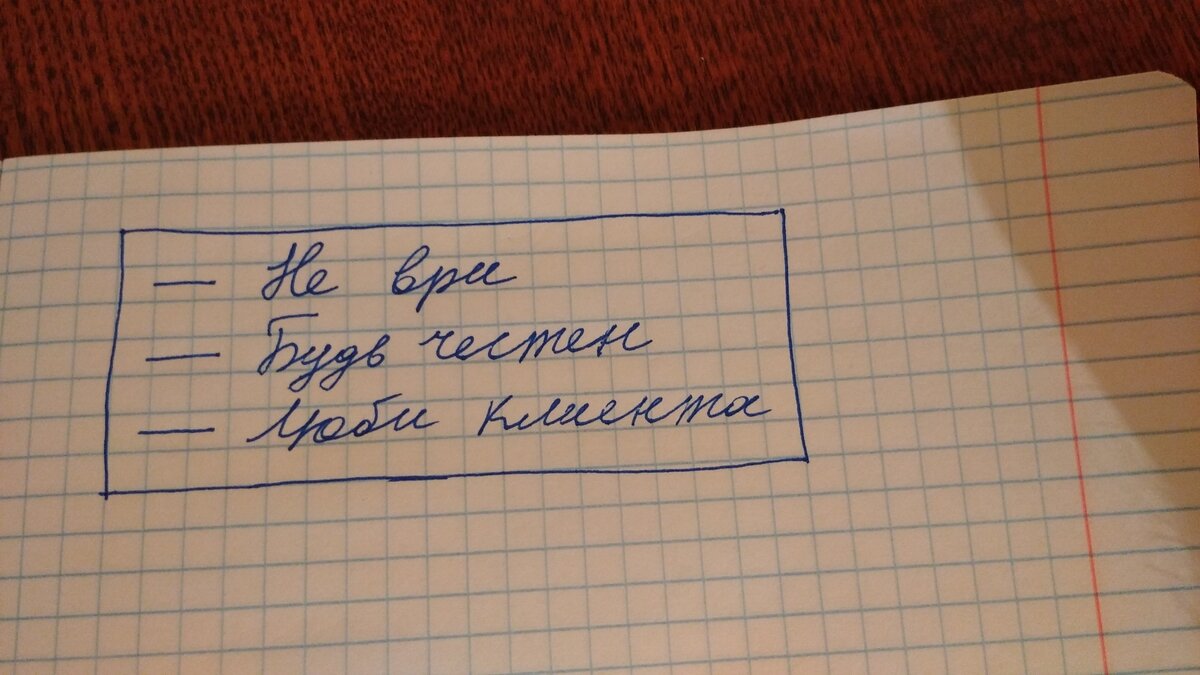 — Не ври
— Будь честен
— Люби клиента